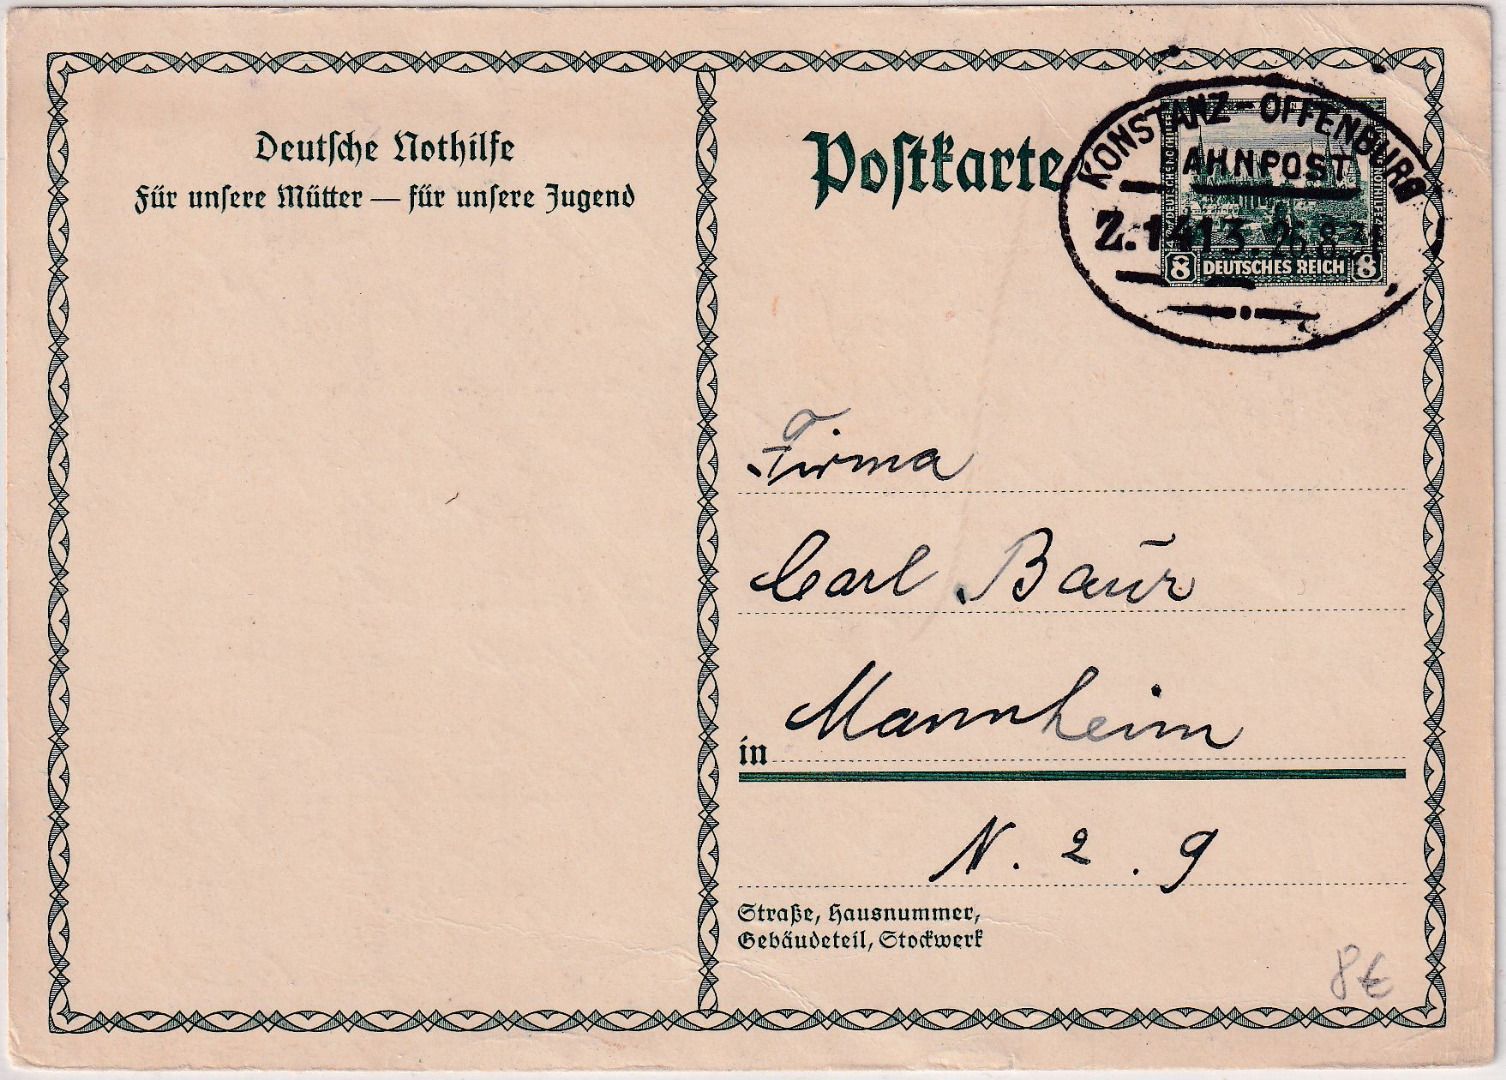 Deutsche Nothilfe
Für unsere Mütter — für unsere Jugend
Postkarte
KONSTANZ - OFFENBURG
AHNPOST
Z.1413. 26.8.31
8 DEUTSCHES REICH 8
Firma
Carl Baur
Mannheim
in
N. 2. 9
Straße, Hausnummer,
Gebäudeteil, Stockwerk
8€